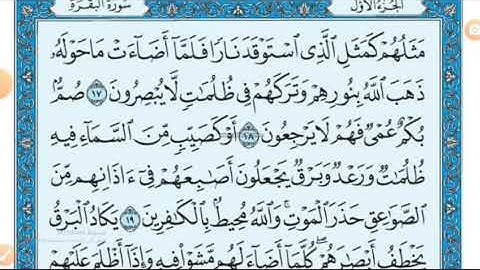 سُورَةُ البَقَرَةِ
الجُزْءُ الأَوَّلُ
مَثَلُهُمْ كَمَثَلِ ٱلَّذِى ٱسْتَوْقَدَ نَارًا فَلَمَّآ أَضَآءَتْ مَا حَوْلَهُۥ
ذَهَبَ ٱللَّهُ بِنُورِهِمْ وَتَرَكَهُمْ فِى ظُلُمَٰتٍ لَّا يُبْصِرُونَ ١٧ صُمٌّۢ
بُكْمٌ عُمْىٌ فَهُمْ لَا يَرْجِعُونَ ١٨ أَوْ كَصَيِّبٍ مِّنَ ٱلسَّمَآءِ فِيهِ
ظُلُمَٰتٌ وَرَعْدٌ وَبَرْقٌ يَجْعَلُونَ أَصَٰبِعَهُمْ فِىٓ ءَاذَانِهِم مِّنَ
ٱلصَّوَٰعِقِ حَذَرَ ٱلْمَوْتِ ۚ وَٱللَّهُ مُحِيطٌۢ بِٱلْكَٰفِرِينَ ١٩ يَكَادُ ٱلْبَرْقُ
يَخْطَفُ أَبْصَٰرَهُمْ ۖ كُلَّمَآ أَضَآءَ لَهُم مَّشَوْا۟ فِيهِ وَإِذَآ أَظْلَمَ عَلَيْهِمْ